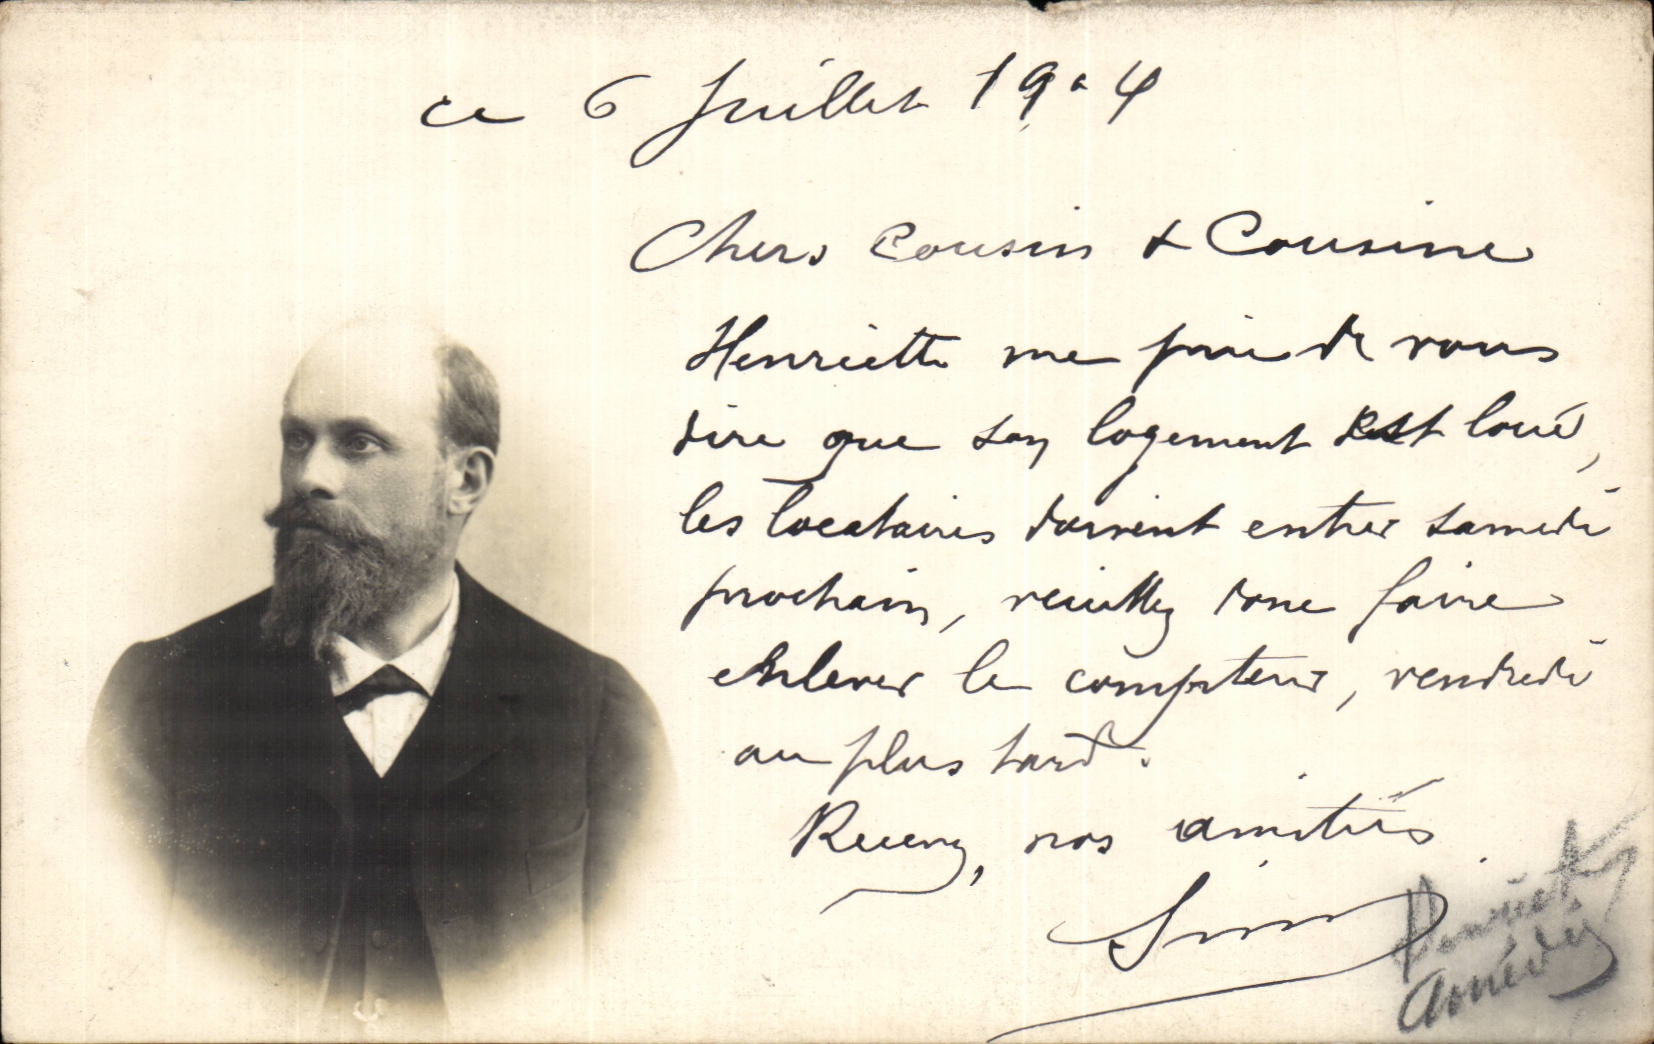 ce 6 Juillet 1904
Chers Cousin & Cousine
Henriette me prie de vous
dire que son logement est loué,
les locataires doivent entrer samedi
prochain, veuillez donc faire
enlever le compteur, vendredi
au plus tard.
Recevez, nos amitiés
Simon
Henriette
Amédée